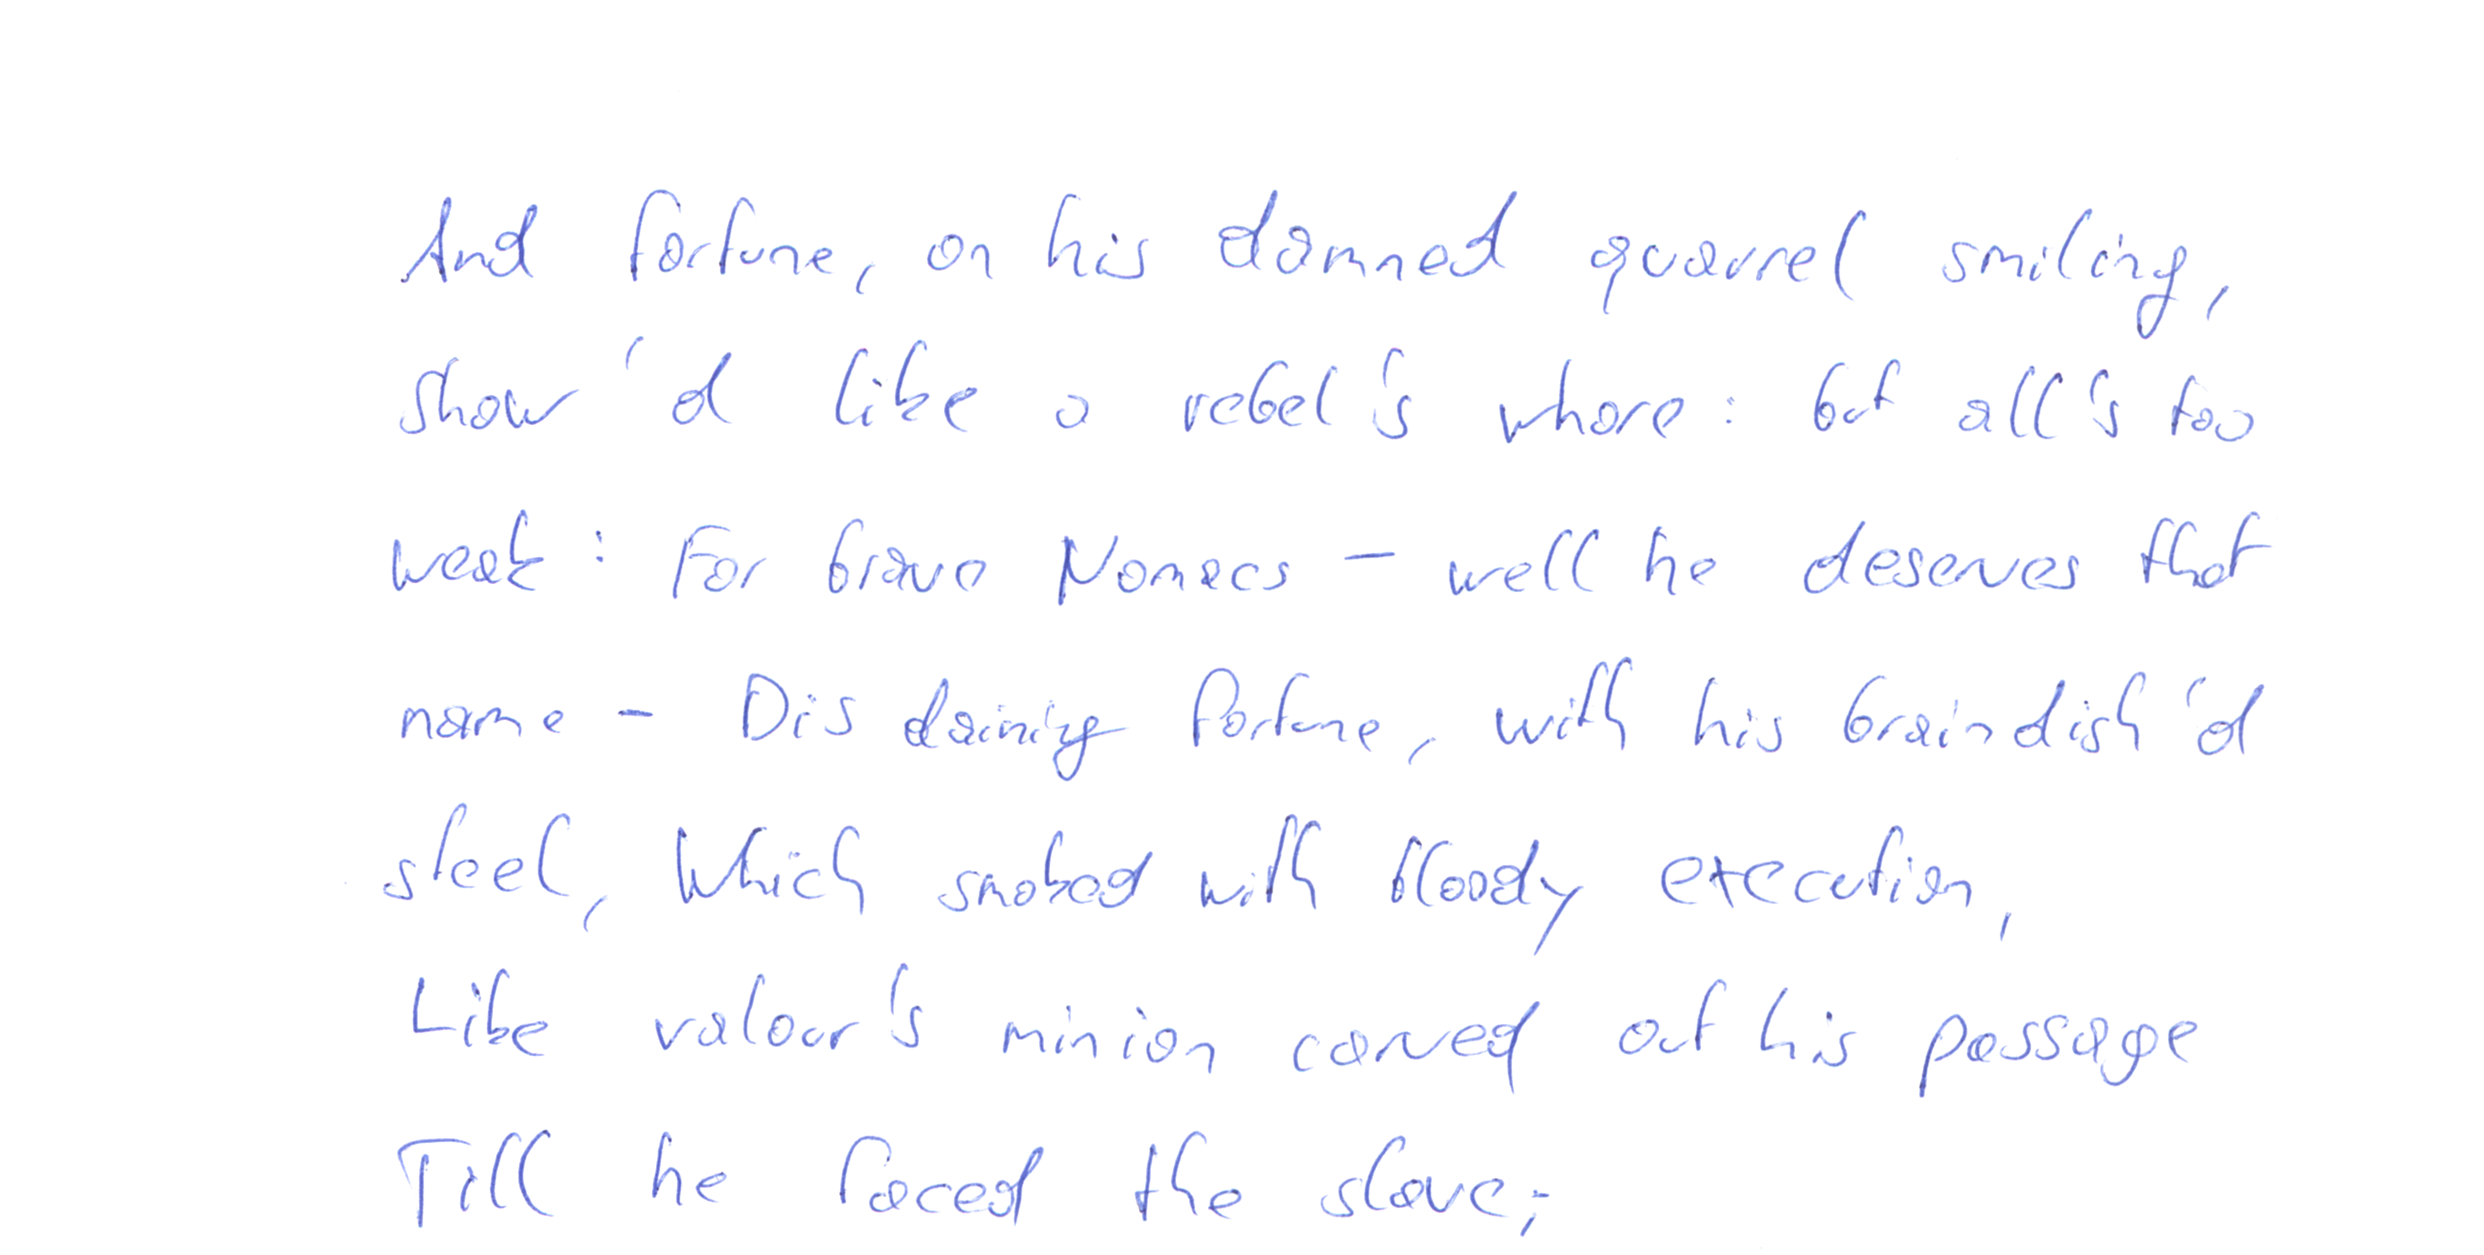 And fortune, on his damned quarrel smiling,
Show'd like a rebel's whore: but all's too
weak: For brave Nomacs - well he deserves that
name - Disdaining fortune, with his braindish'd
steel, Which smoked with bloody execution,
Like valour's minion carved out his passage
Till he faced the slave;